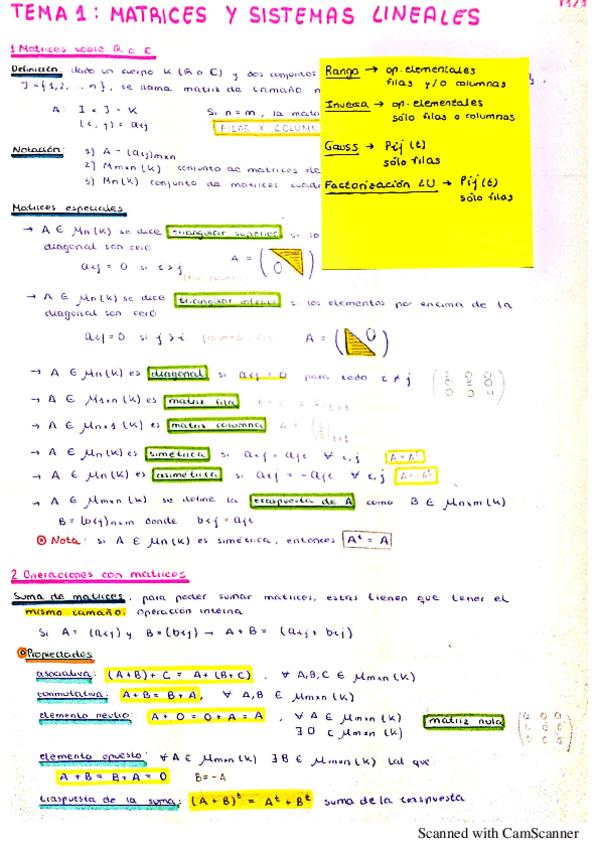 TEMA 1: MATRICES Y SISTEMAS LINEALES
1 Matrices sobre R o C
Definición: dado un cuerpo K (R o C) y dos conjuntos
J={1,2, ... n}, se llama matriz de tamaño
A: I x J → K
(i, j) → aij
Si n=m, la matriz
FILAS X COLUMN
Rango → op. elementales
filas y/o columnas
Inversa → op. elementales
sólo filas o columnas
Gauss → Pij (t)
sólo filas
Factorización LU → Pij(t)
sólo filas
Notación: 1) A = (aij)mxn
2) Mmxn (K) conjunto de matrices de
3) Mn(K) conjunto de matrices cuadra
Matrices especiales
→ A ∈ Mn(K) se dice triangular superior si lo
diagonal son cero
aij = 0 si i>j
A = ( 0 )
→ A ∈ Mn(K) se dice triangular inferior si los elementos por encima de la
diagonal son cero
aij=0 si j>i
A = ( 0 )
→ A ∈ Mn(K) es diagonal si aij = 0 para todo i ≠ j
→ A ∈ M1xn(K) es matriz fila
→ A ∈ Mnx1 (K) es matriz columna
→ A ∈ Mn(K) es simétrica si aij = aji ∀ i,j A=At
→ A ∈ Mn(K) es asimétrica si aij = -aji ∀ i,j A=-At
→ A ∈ Mmxn (K) se define la traspuesta de A como B ∈ Mnxm(K)
B=(bij)nxm donde bij = aji
Nota: si A ∈ Mn(K) es simétrica, entonces At = A
2 Operaciones con matrices
Suma de matrices: para poder sumar matrices, estas tienen que tener el
mismo tamaño. Operación interna
Si A= (aij) y B=(bij) → A+B= (aij+bij)
Propiedades
asociativa: (A+B)+C = A+(B+C), ∀ A,B,C ∈ Mmxn(K)
conmutativa: A+B = B+A, ∀ A,B ∈ Mmxn(K)
elemento neutro: A+O=O+A=A, ∀ A ∈ Mmxn(K)
∃ O ∈ Mmxn(K)
matriz nula
elemento opuesto: ∀ A ∈ Mmxn(K) ∃ B ∈ Mmxn(K) tal que
A+B=B+A=O B=-A
traspuesta de la suma: (A+B)t = At+Bt suma de la traspuesta
Scanned with CamScanner